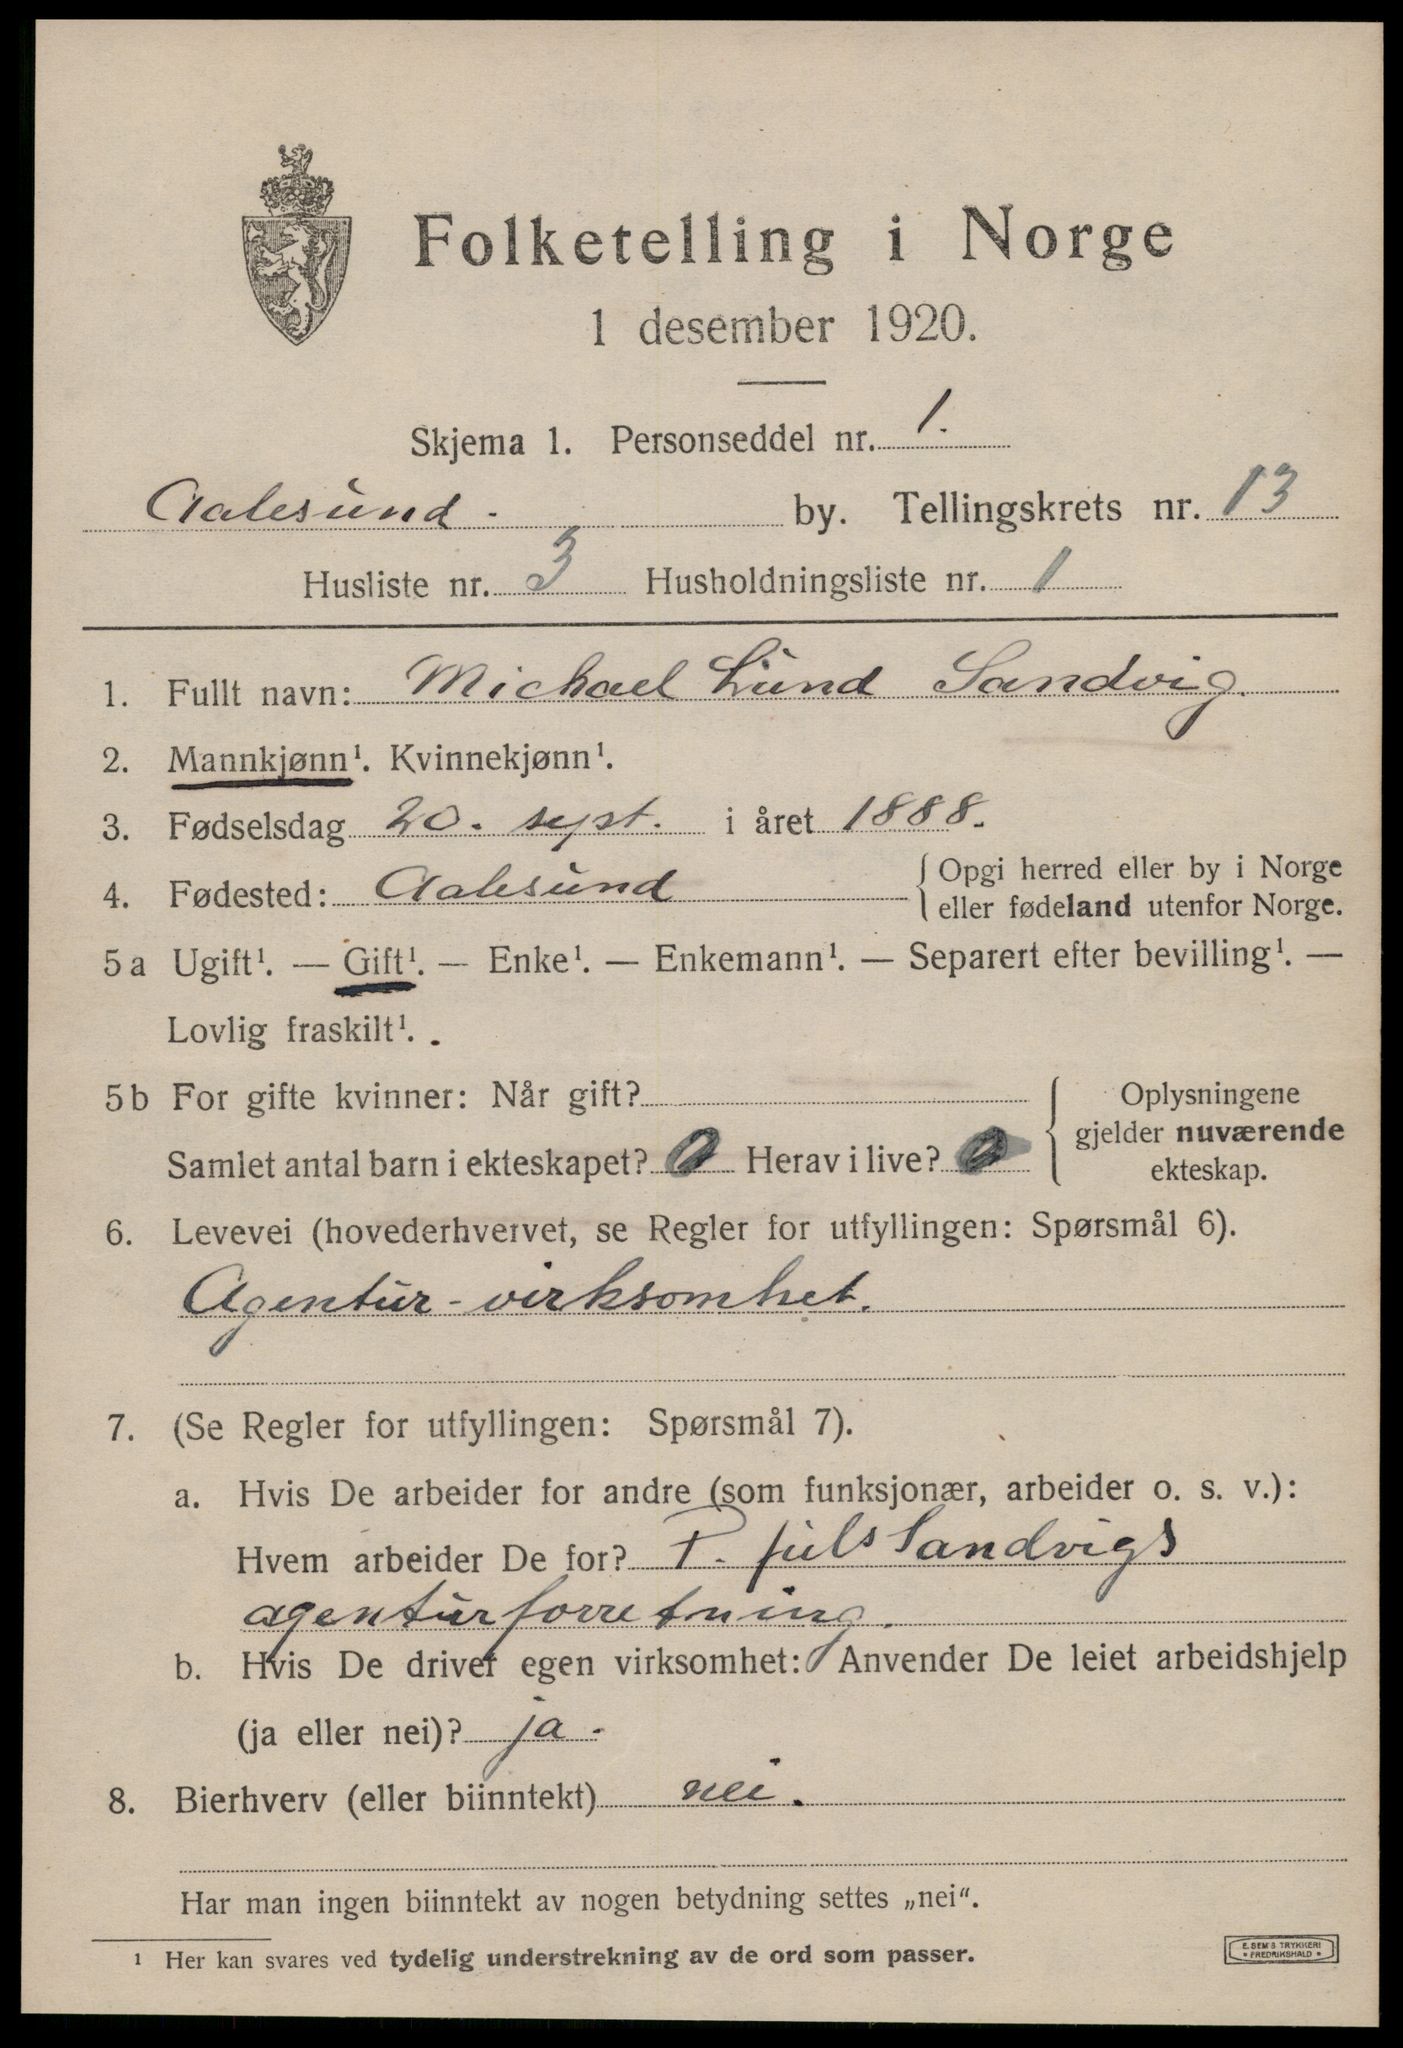 Folketelling i Norge
1 desember 1920.
Skjema 1. Personseddel nr. 1.
Aalesund. by. Tellingskrets nr. 13
Husliste nr. 3 Husholdningsliste nr. 1
1. Fullt navn: Michael Lund Sandvig.
2. Mannkjønn¹. Kvinnekjønn¹.
3. Fødselsdag 20. sept. i året 1888.
4. Fødested: Aalesund { Opgi herred eller by i Norge
eller fødeland utenfor Norge.
5a Ugift¹. — Gift¹. — Enke¹. — Enkemann¹. — Separert efter bevilling¹. —
Lovlig fraskilt¹.
5b For gifte kvinner: Når gift? { Oplysningene
gjelder nuværende
Samlet antal barn i ekteskapet? 0 Herav i live? 0
ekteskap.
6. Levevei (hovederhvervet, se Regler for utfyllingen: Spørsmål 6).
Agentur-virksomhet.
7. (Se Regler for utfyllingen: Spørsmål 7).
a. Hvis De arbeider for andre (som funksjonær, arbeider o. s. v.):
Hvem arbeider De for? P. Juls Sandvigs
agenturforretning.
b. Hvis De driver egen virksomhet: Anvender De leiet arbeidshjelp
(ja eller nei)? ja.
8. Bierhverv (eller biinntekt) nei.
Har man ingen biinntekt av nogen betydning settes „nei“.
¹ Her kan svares ved tydelig understrekning av de ord som passer.
E. SEM'S TRYKKERI
* FREDRIKSHALD *